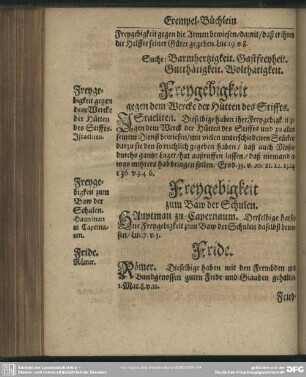 Exempel-Büchlein
Freygebigkeit gegen die Armen bewiesen/damit/daß er ihnen
die Helffte seiner Güter gegeben. Luc. 19. v. 8.
Suche: Barmhertzigkeit. Gastfreyheit.
Gutthätigkeit. Wolthätigkeit.
Freygebigkeit
gegen dem Wercke der Hütten des Stiffts.
ISraeliten. Dieselbige haben ihre Freygebigkeit
gegen dem Werck der Hütten des Stiffts und zu allem
seinem Dienst bewiesen/mit vielen unterschiedenen Stücken
darzu sie den so reichlich gegeben haben / daß auch Mose
durchs gantze Lager/hat außruffen lassen/daß niemand
was mehres hab bringen sollen. Exod. 35. v. 20. 21. 22.
c. 36. v. 3. 4. 6.
Freygebigkeit
gegen dem Wercke
der Hütten
des Stiffts.
Israeliten.
Freygebigkeit
zum Baw der Schulen.
HAuptman zu Capernaum. Derselbige hat
eine Freygebigkeit zum Baw der Schulen daselbst bewiesen/
Luc. 7. v. 5.
Freygebigkeit
zum Baw der
Schulen.
Hauptman
zu Capernaum.
Fride.
RÖmer. Dieselbige haben mit den Frembden
Bundgenossen guten Fride und Glauben gehalten
1. Mac. 8. v. 12.
Fride.
Römer.
Fried